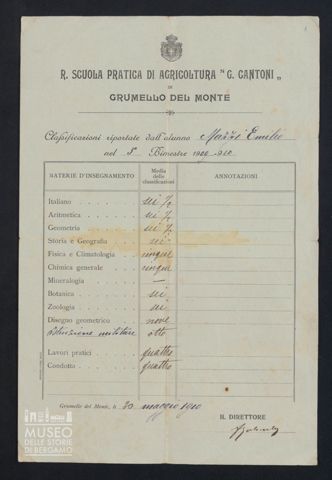 R. SCUOLA PRATICA DI AGRICOLTURA "G. CANTONI„
IN
GRUMELLO DEL MONTE
Classificazioni riportate dall'alunno Mazzi Emilio
nel 5° Bimestre 1909-910
MATERIE D'INSEGNAMENTO Media delle classificazioni ANNOTAZIONI
Italiano sei ½
Aritmetica sei ½
Geometria sei ½
Storia e Geografia sei
Fisica e Climatologia cinque
Chimica generale cinque
Mineralogia —
Botanica sei
Zoologia sei
Disegno geometrico nove
Istruzione militare otto
Lavori pratici quattro
Condotta quattro
Grumello del Monte, li 30 maggio 1910
IL DIRETTORE
MUSEO
DELLE STORIE
DI BERGAMO